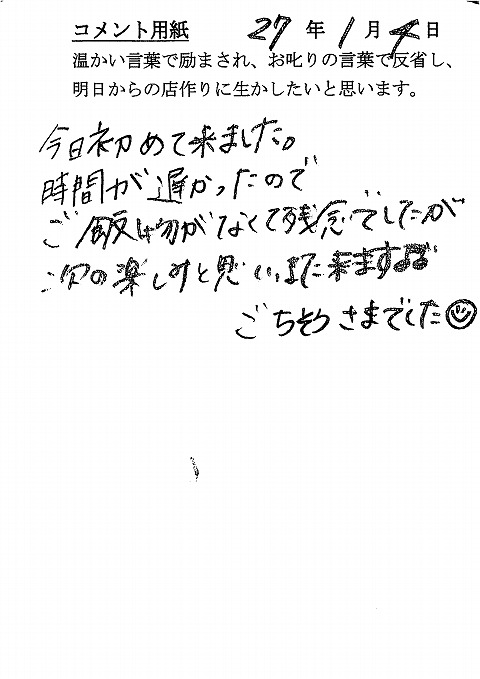 コメント用紙 27年1月4日
温かい言葉で励まされ、お叱りの言葉で反省し、
明日からの店作りに生かしたいと思います。
今日初めて来ました。
時間が遅かったので
ご飯物がなくて残念でしたが
次の楽しみと思い、また来ます
ごちそうさまでした